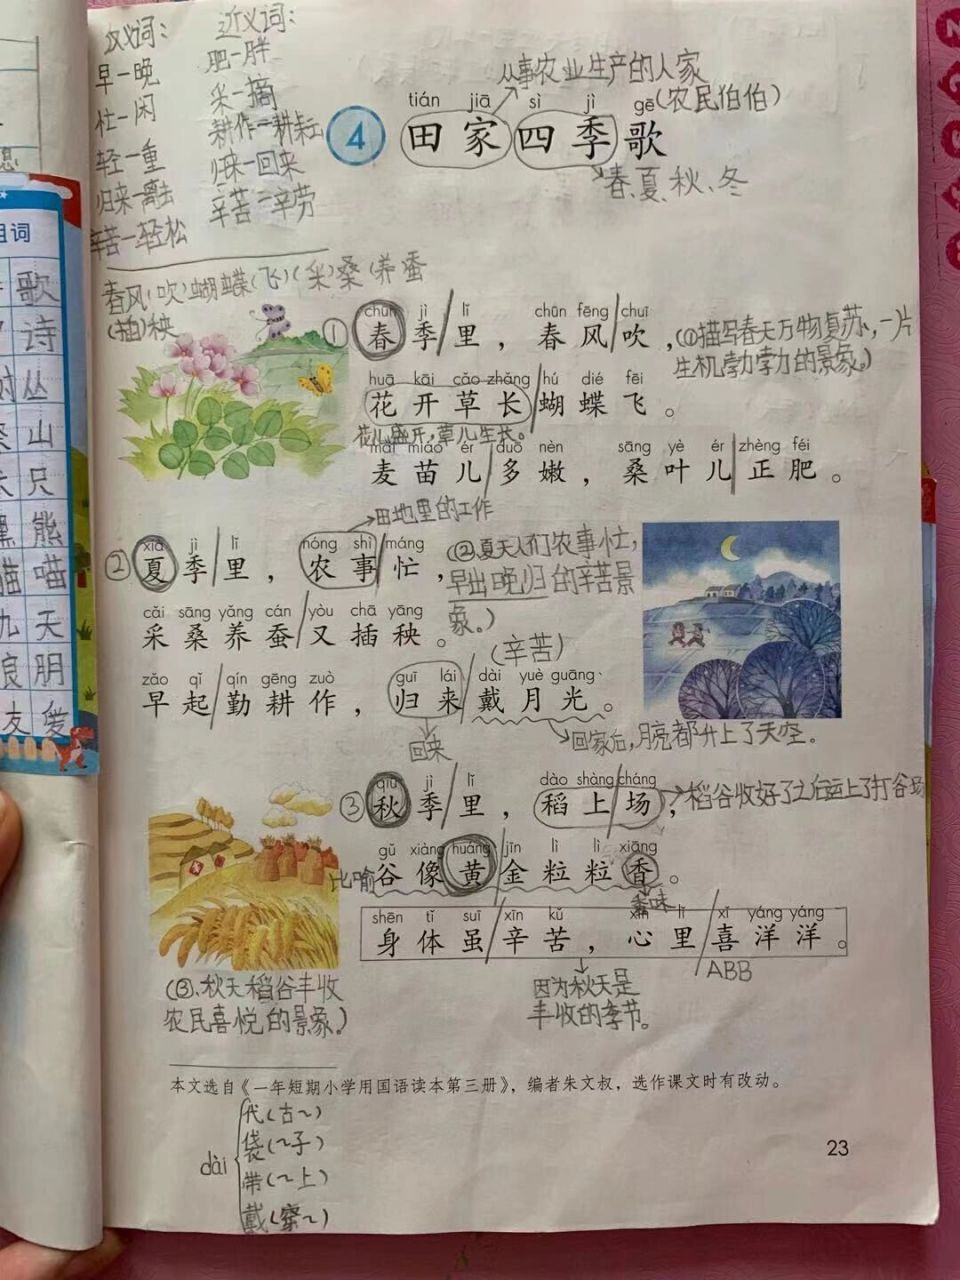 反义词： 近义词：
早—晚 肥—胖
忙—闲 采—摘
轻—重 耕作—耕耘
归来—离去 归来—回来
辛苦—轻松 辛苦—辛劳
从事农业生产的人家
(农民伯伯)
tián jiā sì jì gē
4 田家四季歌
春、夏、秋、冬
春风(吹)蝴蝶(飞)(采)桑(养)蚕
(插)秧
chūn jì lǐ chūn fēng chuī
①春季里，春风吹，
(①描写春天万物复苏，一片
生机勃勃的景象。)
huā kāi cǎo zhǎng hú dié fēi
花开草长蝴蝶飞。
花儿盛开，草儿生长。
mài miáo ér duō nèn sāng yè ér zhèng féi
麦苗儿多嫩，桑叶儿正肥。
田地里的工作
xià jì lǐ nóng shì máng
②夏季里，农事忙，
(②夏天人们农事忙，
早出晚归的辛苦景
象。)
cǎi sāng yǎng cán yòu chā yāng
采桑养蚕又插秧。
(辛苦)
zǎo qǐ qín gēng zuò guī lái dài yuè guāng
早起勤耕作，归来戴月光。
回来
回家后，月亮都升上了天空。
qiū jì lǐ dào shàng cháng
③秋季里，稻上场，
稻谷收好了之后运上了打谷场
gǔ xiàng huáng jīn lì lì xiāng
比喻 谷像黄金粒粒香。
香味
shēn tǐ suī xīn kǔ xīn lǐ xǐ yáng yáng
身体虽辛苦，心里喜洋洋。
ABB
因为秋天是
丰收的季节。
(③、秋天稻谷丰收
农民喜悦的景象。)
本文选自《一年短期小学用国语读本第三册》，编者朱文叔，选作课文时有改动。
dài
代(古~)
袋(~子)
带(~上)
戴(穿~)
23
组词
歌
诗
丛
山
只
熊
喵
九天
朋
友爱